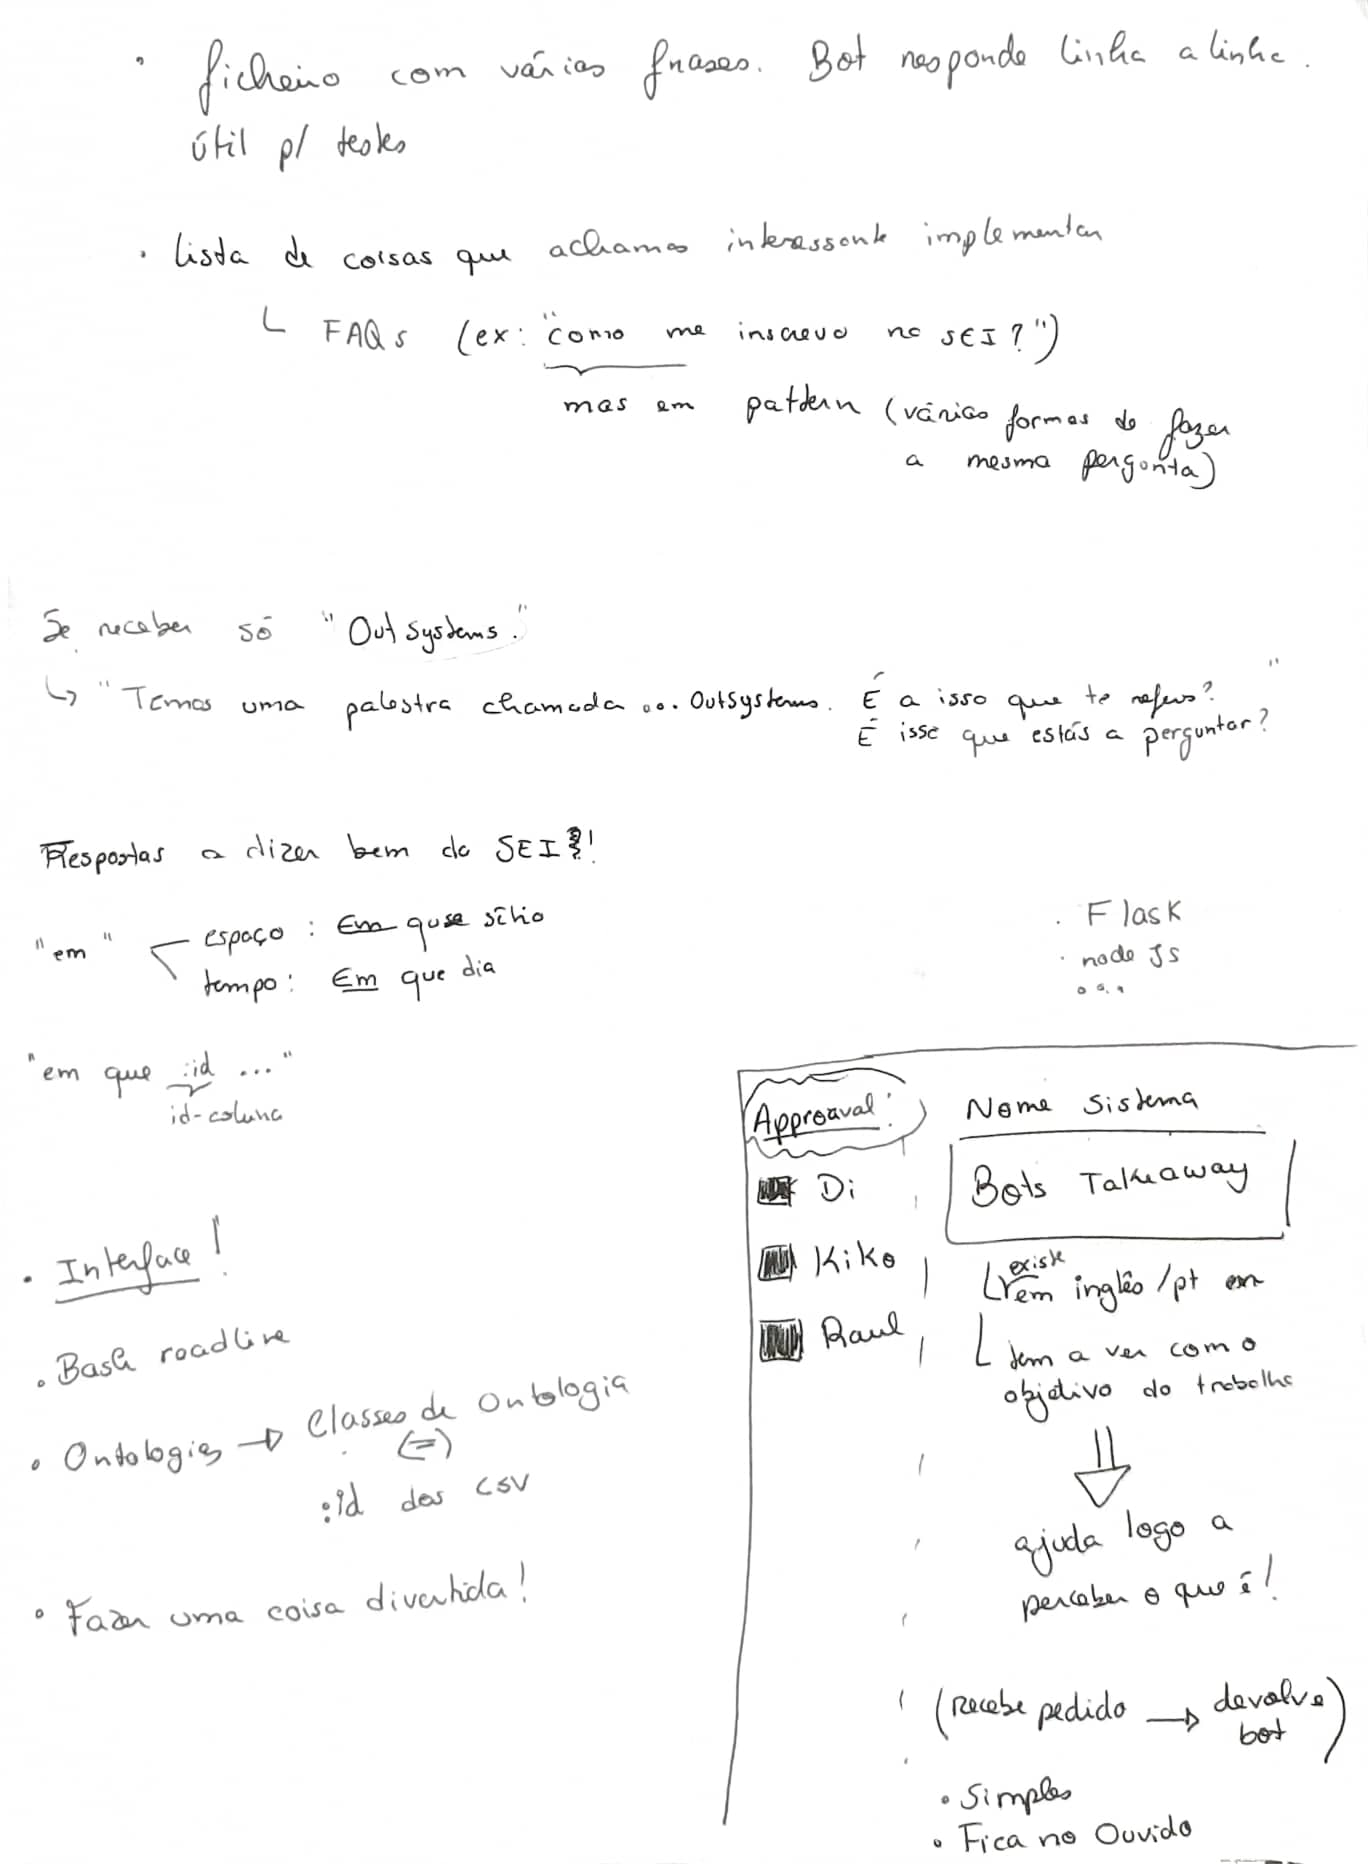 • ficheiro com várias frases. Bot responde linha a linha.
útil p/ testes
• lista de coisas que achamos interessante implementar
↳ FAQs (ex: "como me inscrevo no SEI?")
mas em pattern (várias formas de fazer
a mesma pergunta)
Se receber só "OutSystems."
↳ "Temos uma palestra chamada ... OutSystems. É a isso que te referes?"
É isso que estás a perguntar?
Respostas a dizer bem do SEI!
"em"
espaço: Em que sítio
tempo: Em que dia
"em que :id ..."
id-coluna
• Interface!
• Bash readline
• Ontologias → Classes de Ontologia
(=)
:id dos CSV
• Fazer uma coisa divertida!
• Flask
• node JS
• • •
Approaval:
Di
Kiko
Raul
Nome Sistema
Bots Takeaway
↳ existe em inglês/pt
↳ tem a ver com o
objetivo do trabalho
⇓
ajuda logo a
perceber o que é!
(recebe pedido → devolve
bot)
• Simples
• Fica no Ouvido